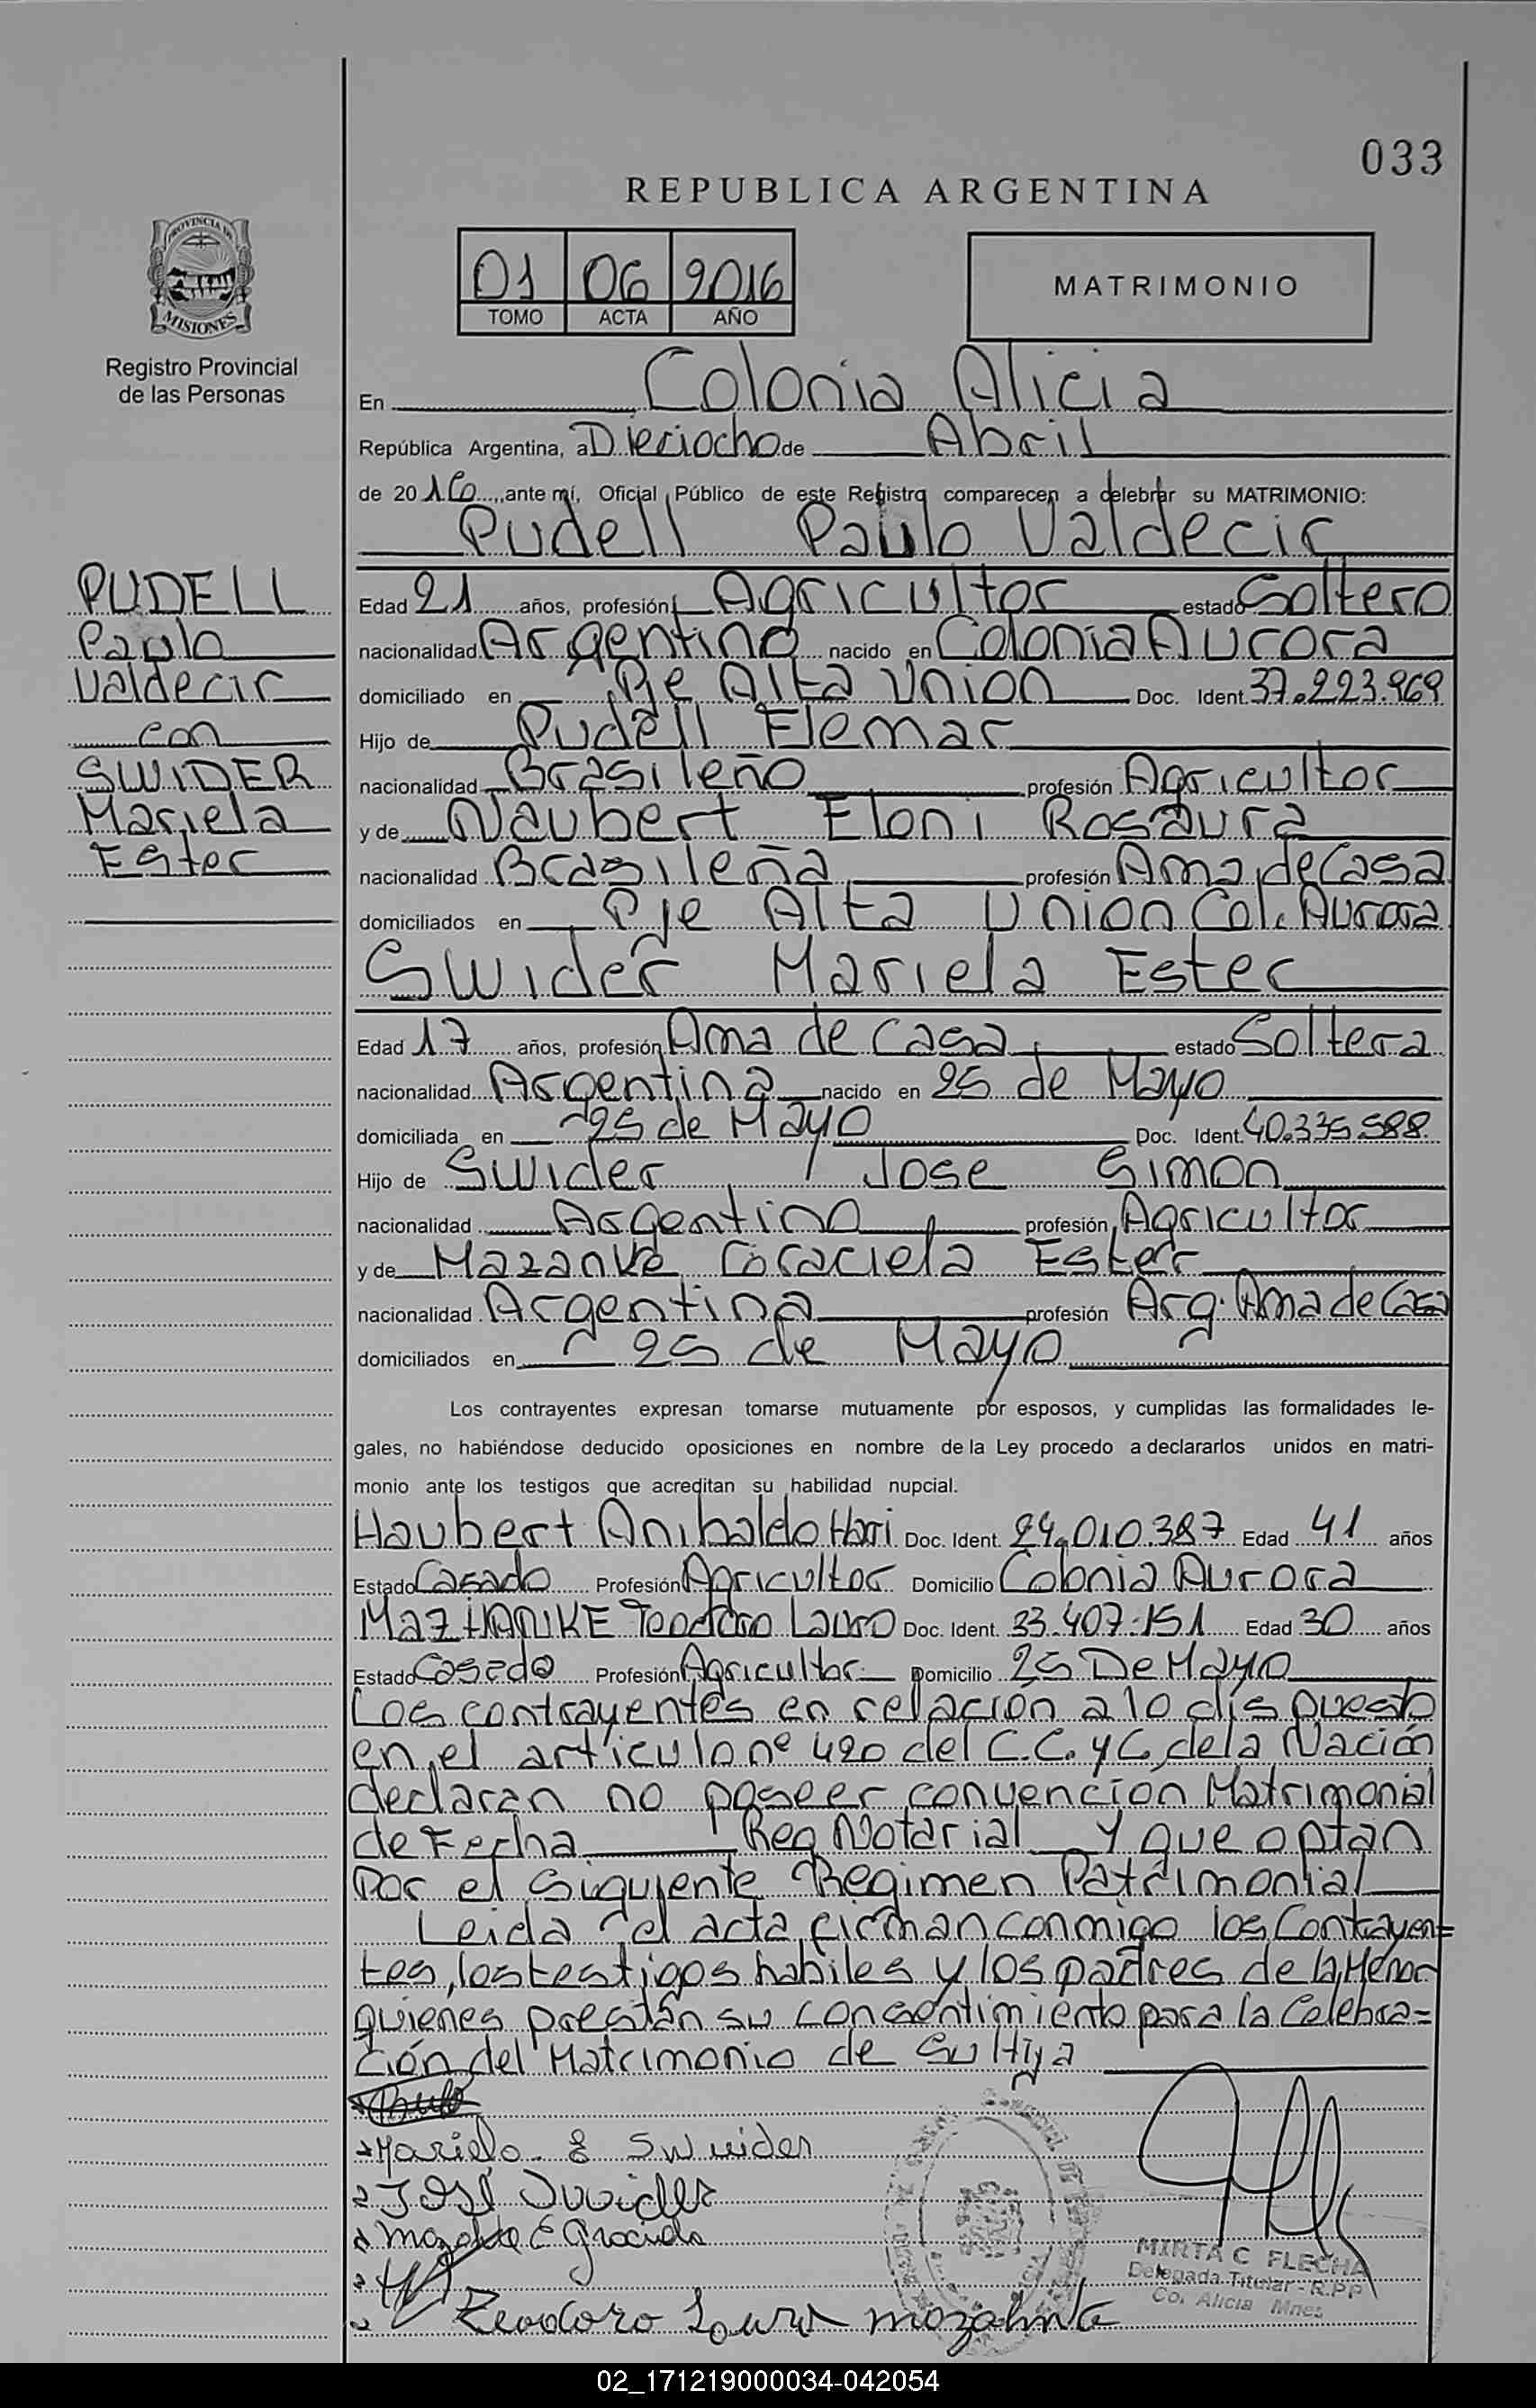 033
REPUBLICA ARGENTINA
PROVINCIA DE
MISIONES
Registro Provincial
de las Personas
01 06 2016
TOMO ACTA AÑO
MATRIMONIO
En Colonia Alicia
República Argentina, a Dieciocho de Abril
de 2016, ante mí, Oficial Público de este Registro comparecen a celebrar su MATRIMONIO:
Pudell Paulo Valdecir
PUDELL
Paulo
Valdecir
con
SWIDER
Mariela
Ester
Edad 21 años, profesión Agricultor estado Soltero
nacionalidad Argentino nacido en Colonia Aurora
domiciliado en Pje Alta Union Doc. Ident. 37.223.969
Hijo de Pudell Elemar
nacionalidad Brasileño profesión Agricultor
y de Naubert Eloni Rosaura
nacionalidad Brasileña profesión Ama de Casa
domiciliados en Pje Alta Union Col. Aurora
Swider Mariela Ester
Edad 17 años, profesión Ama de Casa estado Soltera
nacionalidad Argentina nacido en 25 de Mayo
domiciliada en 25 de Mayo Doc. Ident. 40.335.588
Hijo de Swider Jose Simon
nacionalidad Argentino profesión Agricultor
y de Mazanke Graciela Ester
nacionalidad Argentina profesión Arg. Ama de Casa
domiciliados en 25 de Mayo
Los contrayentes expresan tomarse mutuamente por esposos, y cumplidas las formalidades le-
gales, no habiéndose deducido oposiciones en nombre de la Ley procedo a declararlos unidos en matri-
monio ante los testigos que acreditan su habilidad nupcial.
Haubert Anibaldo Hari Doc. Ident. 24.010.387 Edad 41 años
Estado Casado Profesión Agricultor Domicilio Colonia Aurora
MAZHANKE Teodoro Lauro Doc. Ident. 33.407.151 Edad 30 años
Estado Casado Profesión Agricultor Domicilio 25 De Mayo
Los contrayentes en relación a lo dispuesto
en el articulo nº 420 del C.C. y C. de la Nación
declaran no poseer convención Matrimonial
de Fecha Reg Notarial y que optan
Por el Siguiente Regimen Patrimonial
Leida el acta, firman conmigo los Contrayen=
tes, los testigos habiles y los padres de la Menor
quienes prestan su consentimiento para la Celebra=
ción del Matrimonio de su Hija
Mariela E Swider
José Swider
E Graciela
Teodoro Lauro
MIRTA C FLECHA
Delegada Titular - R.P.P
Co. Alicia Mnes
02_171219000034-042054